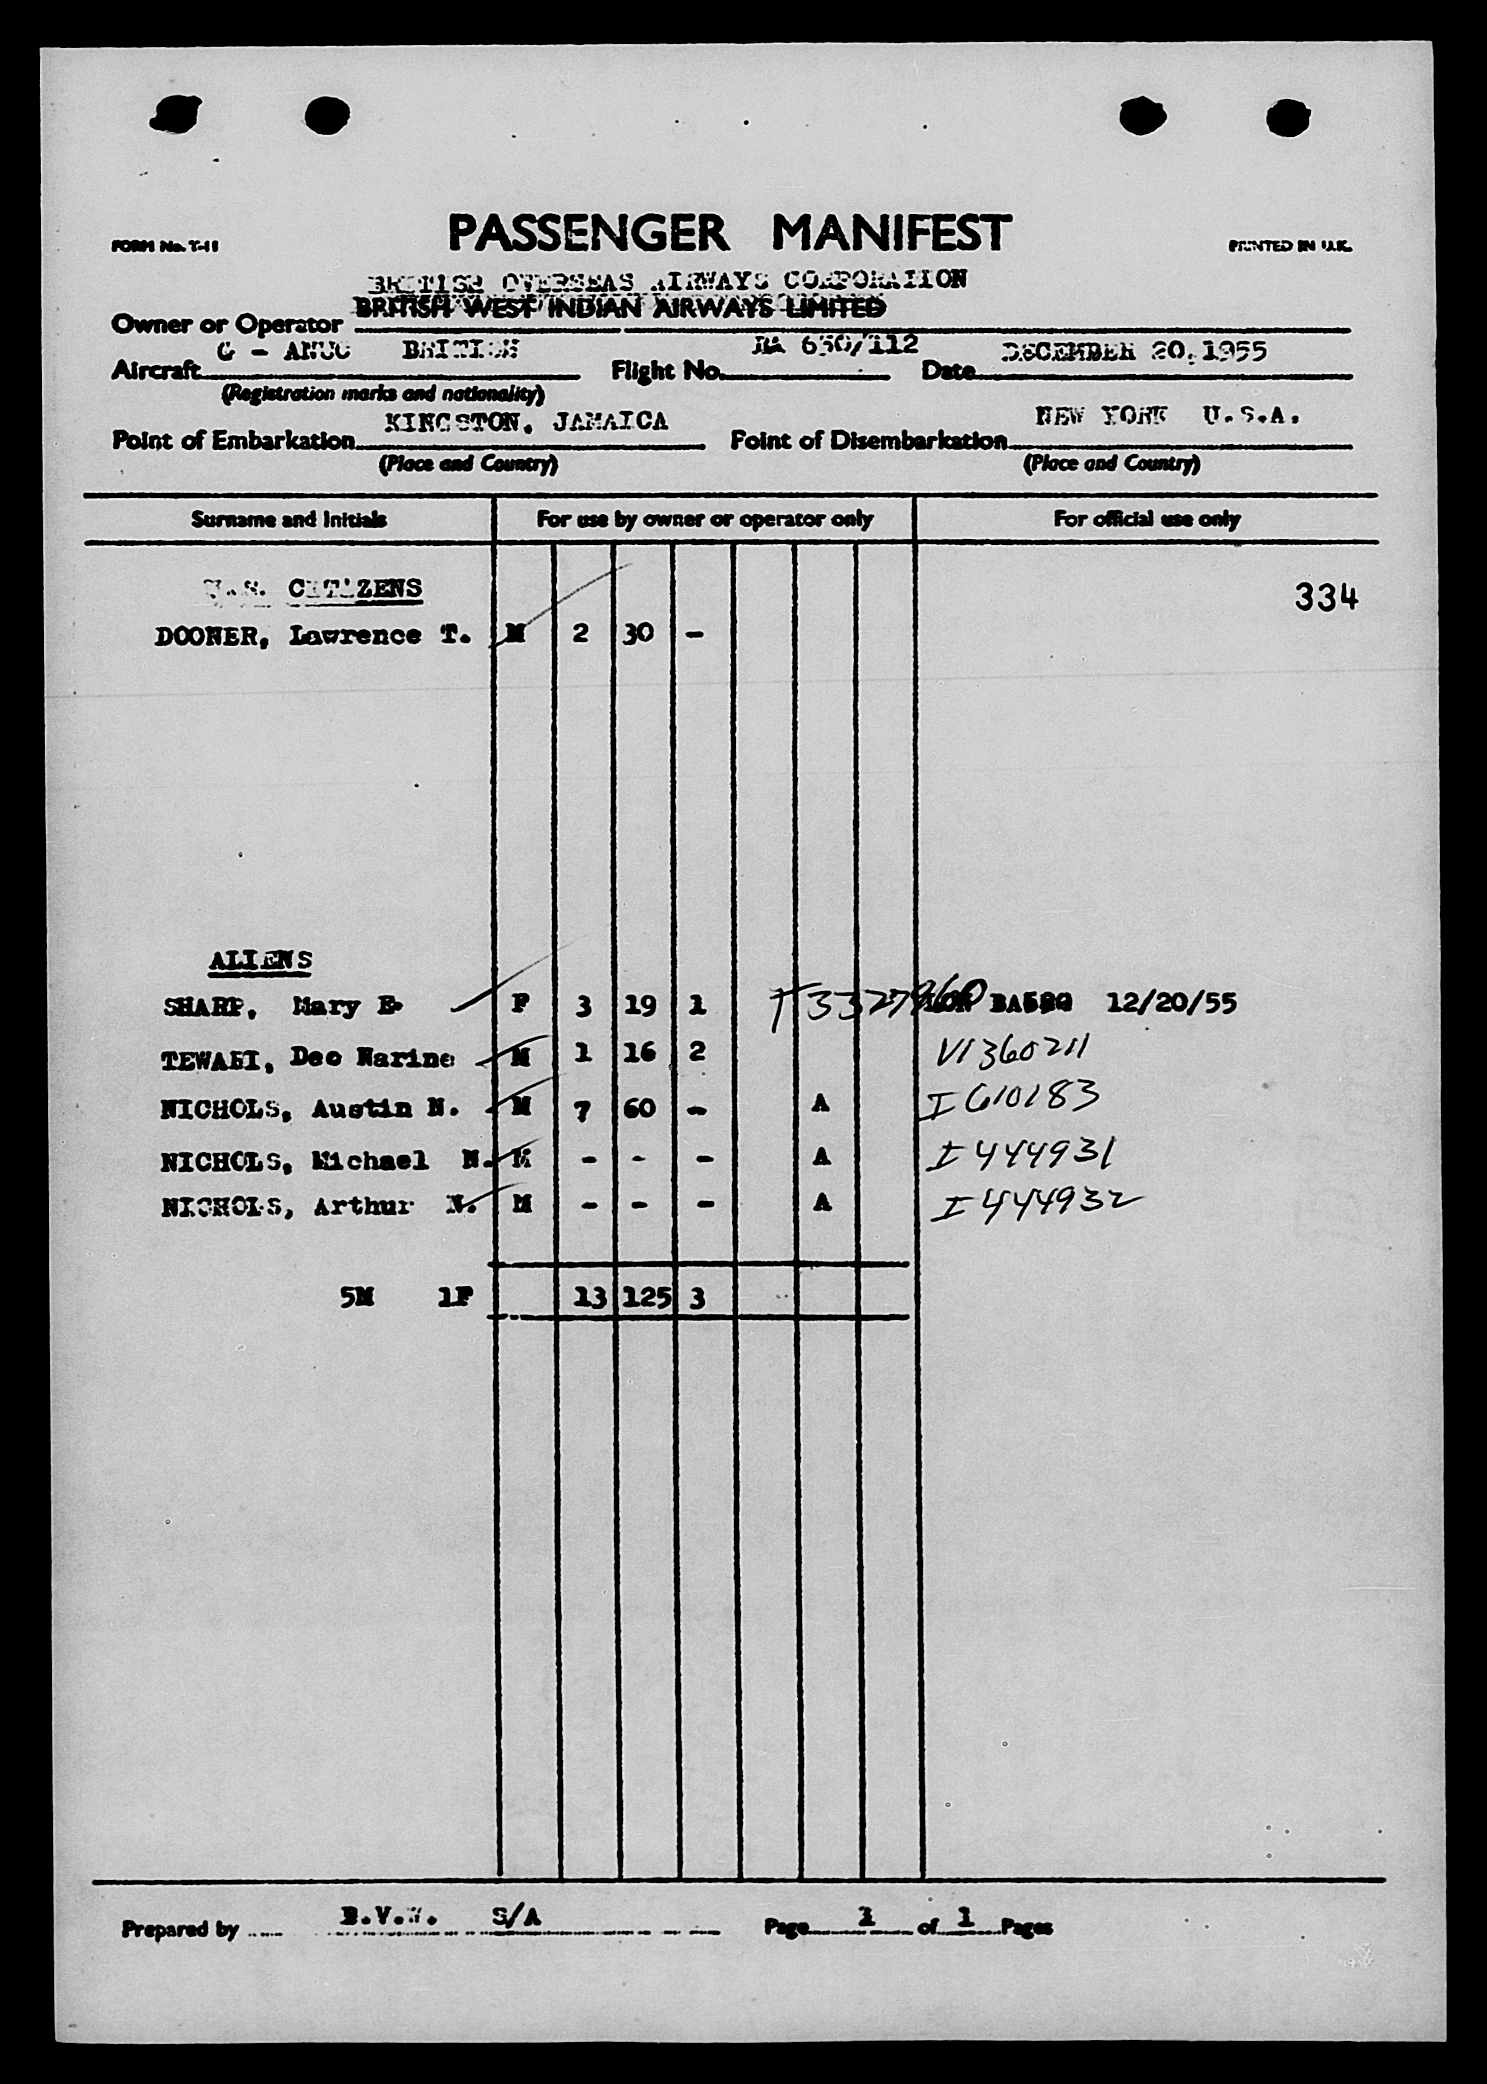 PASSENGER MANIFEST
FORM No. T-11
PRINTED IN U.K.
BRITISH OVERSEAS AIRWAYS CORPORATION
BRITISH WEST INDIAN AIRWAYS LIMITED
Owner or Operator
G - ANUC BRITISH BA 650/112 DECEMBER 20, 1955
Aircraft Flight No. Date
(Registration marks and nationality)
KINGSTON, JAMAICA NEW YORK U.S.A.
Point of Embarkation Point of Disembarkation
(Place and Country) (Place and Country)
Surname and Initials For use by owner or operator only For official use only
U.S. CITIZENS 334
DOONER, Lawrence T. M 2 30 -
ALIENS
SHARP, Mary E. F 3 19 1 T3327960 BA 12/20/55
TEWARI, Deo Narine M 1 16 2 V1360211
NICHOLS, Austin N. M 7 60 - A I610183
NICHOLS, Michael N. M - - - A I444931
NICHOLS, Arthur N. M - - - A I444932
5M 1F 13 125 3
Prepared by B.V.W. S/A Page 1 of 1 Pages